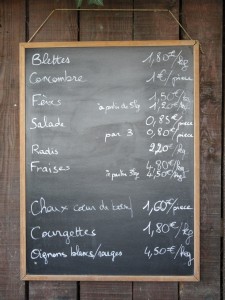 Blettes 1,80€/kg
Concombre 1€/pièce
Fèves 1,50€/kg
à partir de 5kg 1,20€/kg
Salade 0,85€/pièce
par 3 0,80€/pièce
Radis 2,20€/kg
Fraises 4,80€/kg
à partir 3kg 4,50€/kg
Choux cœur de bœuf 1,60€/pièce
Courgettes 1,80€/kg
Oignons blancs/rouges 4,50€/kg